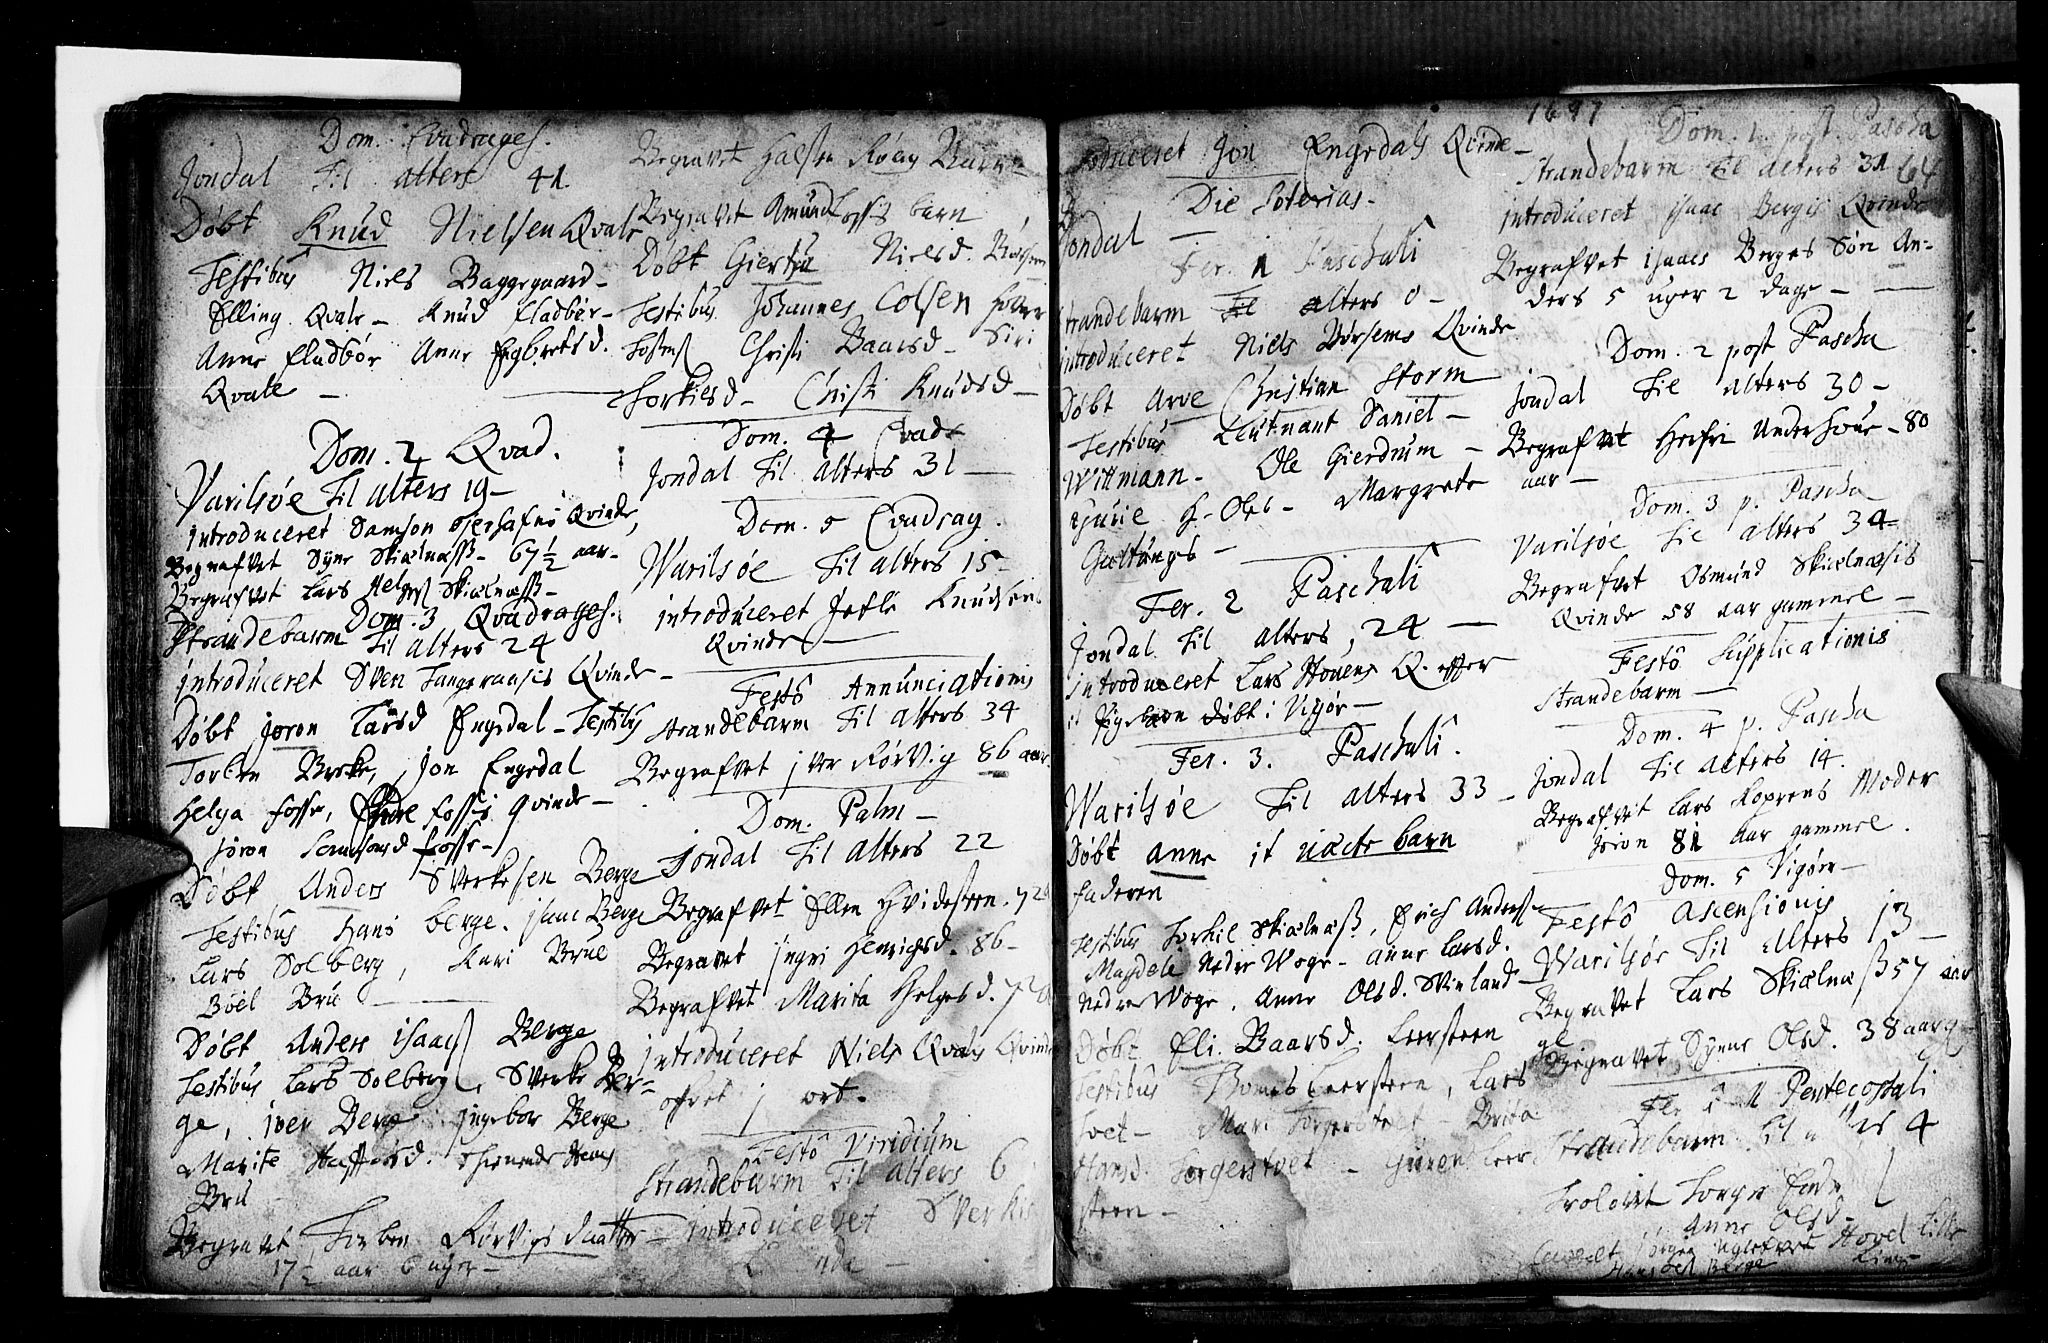 Dom. Qvadrages.
Jondal til alters 41
Døbt Knud Nielsen Qvale
Testibus Niels Baggegaard
Elling Qvale - Knud fladbør
Anne fladbør Anne Engbretsd.
Qvale -
Dom. 2 Qvad.
Varilsøe til alters 19 -
introduceret Samson Qvinde
Begrafvet Syne Skiælnæss - 67½ aar -
Begrafvet Lars Helges Skiælnæss -
Dom. 3 Qvadrages.
Strandebarm til alters 24
introduceret Sven Tangeraasis Qvinde -
Døbt Joron Larsd Engedal - Testibus
Torben Breke, Jon Engedal
Helga fosse, Endre fosses qvinde -
Joron Samsonsd fosse -
Døbt Anders Sverkesen Berge
Testibus Hans berge. isaac Berge
Lars Solberg, Kari Brue
Boel Bru -
Døbt Anders isaacs Berge
Testibus Lars Solberg, Sverke Ber-
ge, iver Berge ingebor Berge
Marite thienende Hans
Bru
Begravet Torben Rørvigs daatter -
17½ aar 6 uger -
Begravet Halsten Røag Barn
Begravet Amund fosses barn
Døbt Giertru Nielsd. Børsem
Testibus Johannes Colsen
Christi Baarsd - Siri
Torkilsd - Christi Knudsd -
Dom. 4 Qvad.
Jondal til alters 31 -
Dom. 5 Qvadrag.
Warilsøe til alters 15 -
introduceret Jetle Knudsens
Qvinde -
Festo Annunciationis
Strandebarm til alters 34
Begrafvet iver Rørvig 86 aar
Dom. Palm -
Jondal til alters 22
Begrafvet Ellen Hvidesteen. 72
Begravet ingri Henrichsd. 86 -
Begrafvet Marita Helgesd. 72
introduceret Niels Qvales Qvinde
ofret 1 ort.
Festo Viridium
Strandebarm til alters 6
introduceret Sverkis
1697
introduceret Jon Engedals Qvinde -
Die Soterias -
Jondal -
Fer. 1 Paschali
Strandebarm til alters 0 -
introduceret Niels Børsems Qvinde
Døbt Arve Christian Storm
Testibus Leutnant Daniel -
Wittmann - Ole Gierdrum -
Hr. Oles - Margrete
Galtungs -
Fer. 2 Paschali
Jondal til alters, 24 -
introduceret Lars Q. effter
it Pigebarn døbt i Vigør -
Fer. 3. Paschali.
Warilsøe til alters 33 -
Døbt anne it uæcte barn
faderen
Testibus Torkil Skiælnæss, Erich Anders
Magdele Nedre Woge - anne Larsd.
Nedre Woge, Anne Olsd. Svinland -
Døbt Eli Baarsd. Leersteen
Testibus Leersteen, Lars
tvet - Mari - Brita
Hansd. Torgerstvet - Guron Leer
steen -
Dom. 1. post. Pascha
64
Strandebarm til alters 31
introduceret isaac Bergis Qvinde
Begrafvet isaacs Berges Søn An-
ders 5 uger 2 dage -
Dom. 2 post Pascha
Jondal til alters 30 -
Begrafvet Herfri Underhoue - 80
aar -
Dom. 3 p. Pascha
Varilsøe til alters 34 -
Begrafvet Osmund Skiælnæsis
Qvinde 58 aar gammel -
Festo Supplicationis
Strandebarm -
Dom. 4 p. Pascha
Jondal til alters 14.
Begrafvet Lars Koprens Moder
Joron 81 aar gammel.
Dom. 5 Vigør -
Festo Ascensionis
Warilsøe til alters 13 -
Begravet Lars Skiælnæss 57 aar
gl
Begravet Synne Olsd. 38 aar g
Fer. 1 Pentecostali
Strandebarm til alters 4
Trolovet Torger
Anne Olsd -